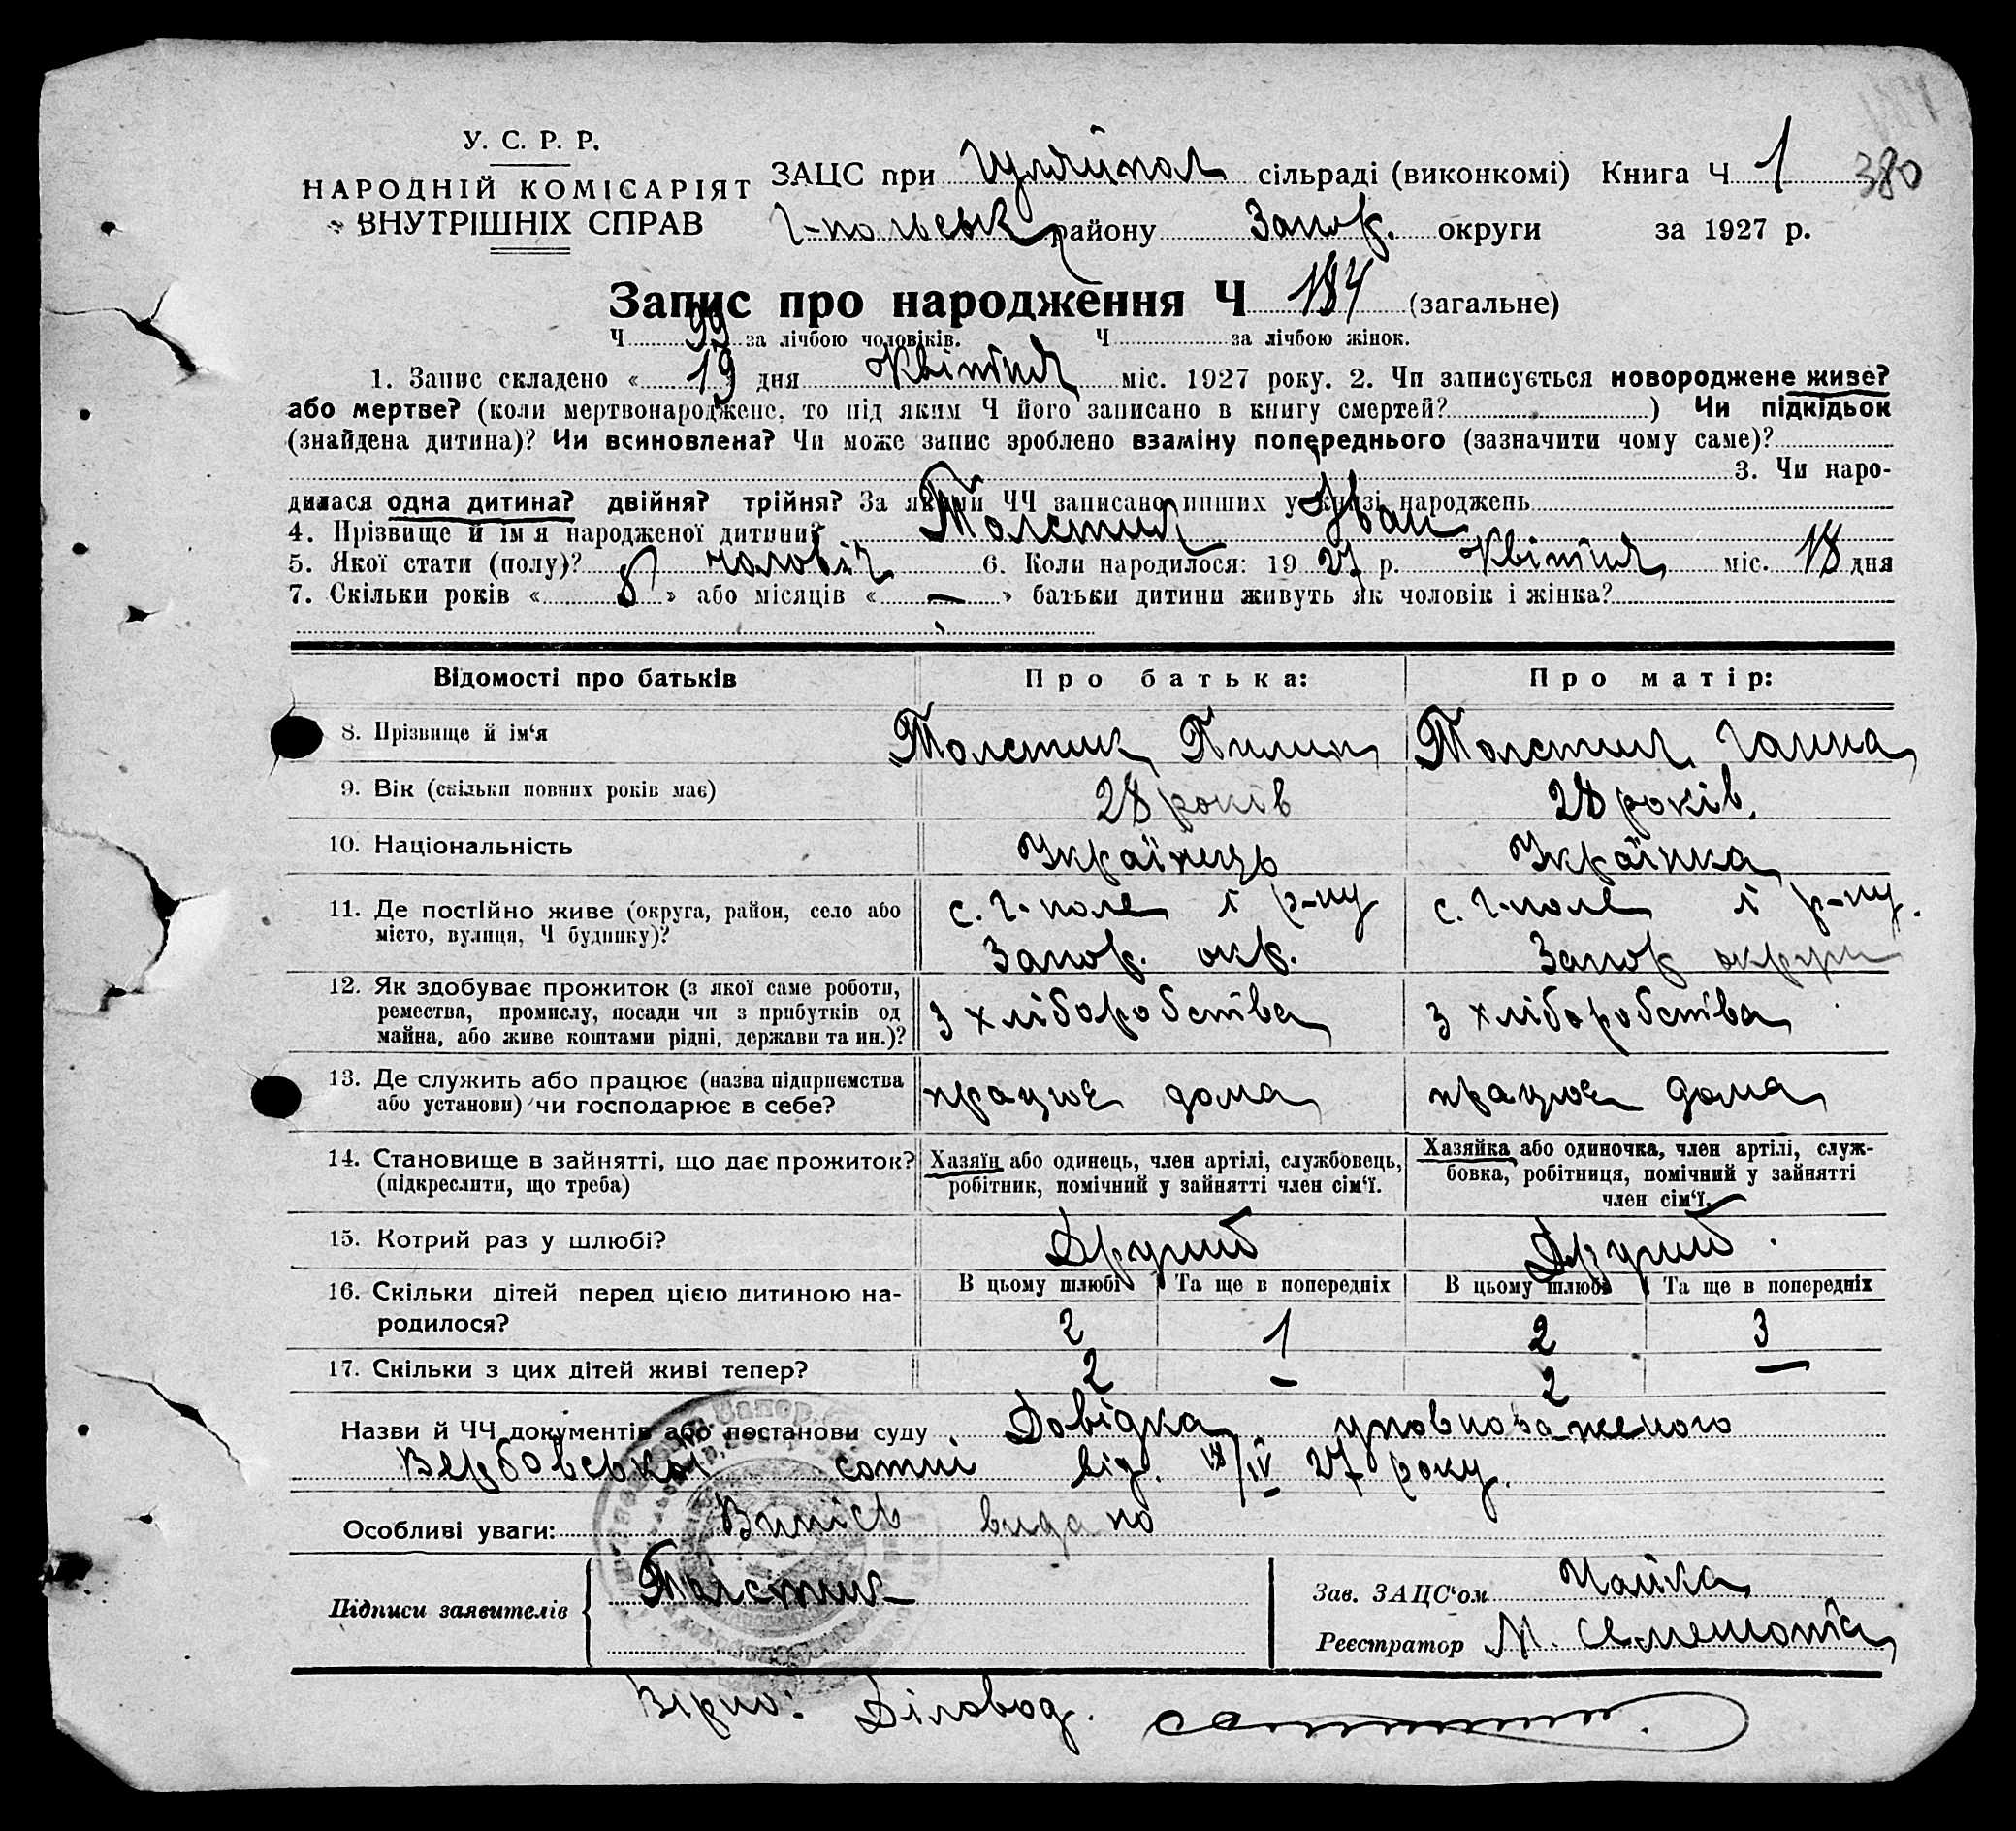 У. С. Р. Р.
НАРОДНІЙ КОМІСАРІЯТ
ВНУТРІШНІХ СПРАВ
ЗАЦС при Гуляйпол сільраді (виконкомі) Книга Ч 1 380
Г-польськ району Запор. округи за 1927 р.
Запис про народження Ч 184 (загальне)
Ч 99 за лічбою чоловіків. Ч за лічбою жінок.
1. Запис складено « 19 дня Квітня міс. 1927 року. 2. Чи записується новороджене живе?
або мертве? (коли мертвонароджене, то під яким Ч його записано в книгу смертей? ) Чи підкідьок
(знайдена дитина)? Чи всиновлена? Чи може запис зроблено взаміну попереднього (зазначити чому саме)?
3. Чи наро-
дилася одна дитина? двійня? трійня? За якими ЧЧ записано инших у книзі народжень
4. Прізвище й ім'я народженої дитини? Толстик Іван
5. Якої стати (полу)? чоловіч 6. Коли народилося: 19 27 р. Квітня міс. 18 дня
7. Скільки років « 8 » або місяців « — » батьки дитини живуть як чоловік і жінка?
Відомості про батьків Про батька: Про матір:
8. Прізвище й ім'я Толстик Пилип Толстик Ганна
9. Вік (скільки повних років має) 28 років 28 років.
10. Національність Українець Українка
11. Де постійно живе (округа, район, село або с. Г-поле р-ну с. Г-поле р-ну.
місто, вулиця, Ч будинку)? Запор. окр. Запор округи
12. Як здобуває прожиток (з якої саме роботи,
ремества, промислу, посади чи з прибутків од з хліборобства з хліборобства
майна, або живе коштами рідні, держави та ин.)?
13. Де служить або працює (назва підприємства працює дома працює дома
або установи) чи господарює в себе?
14. Становище в зайнятті, що дає прожиток? Хазяїн або одинець, член артілі, службовець, Хазяйка або одиночка, член артілі, служ-
(підкреслити, що треба) робітник, помічний у зайнятті член сім'ї. бовка, робітниця, помічний у зайнятті
член сім'ї.
15. Котрий раз у шлюбі? Другий Другий.
16. Скільки дітей перед цією дитиною на- В цьому шлюбі Та ще в попередніх В цьому шлюбі Та ще в попередніх
родилося? 2 1 2 3
17. Скільки з цих дітей живі тепер? 2 — 2 —
Назви й ЧЧ документів або постанови суду Довідка уповноваженого
Вербовської сотні від. 18/IV 27 року.
Особливі уваги: Випісь видано
Підписи заявителів Толстик Зав. ЗАЦС'ом Чайка
Реєстратор М.
Вірно: Діловод.